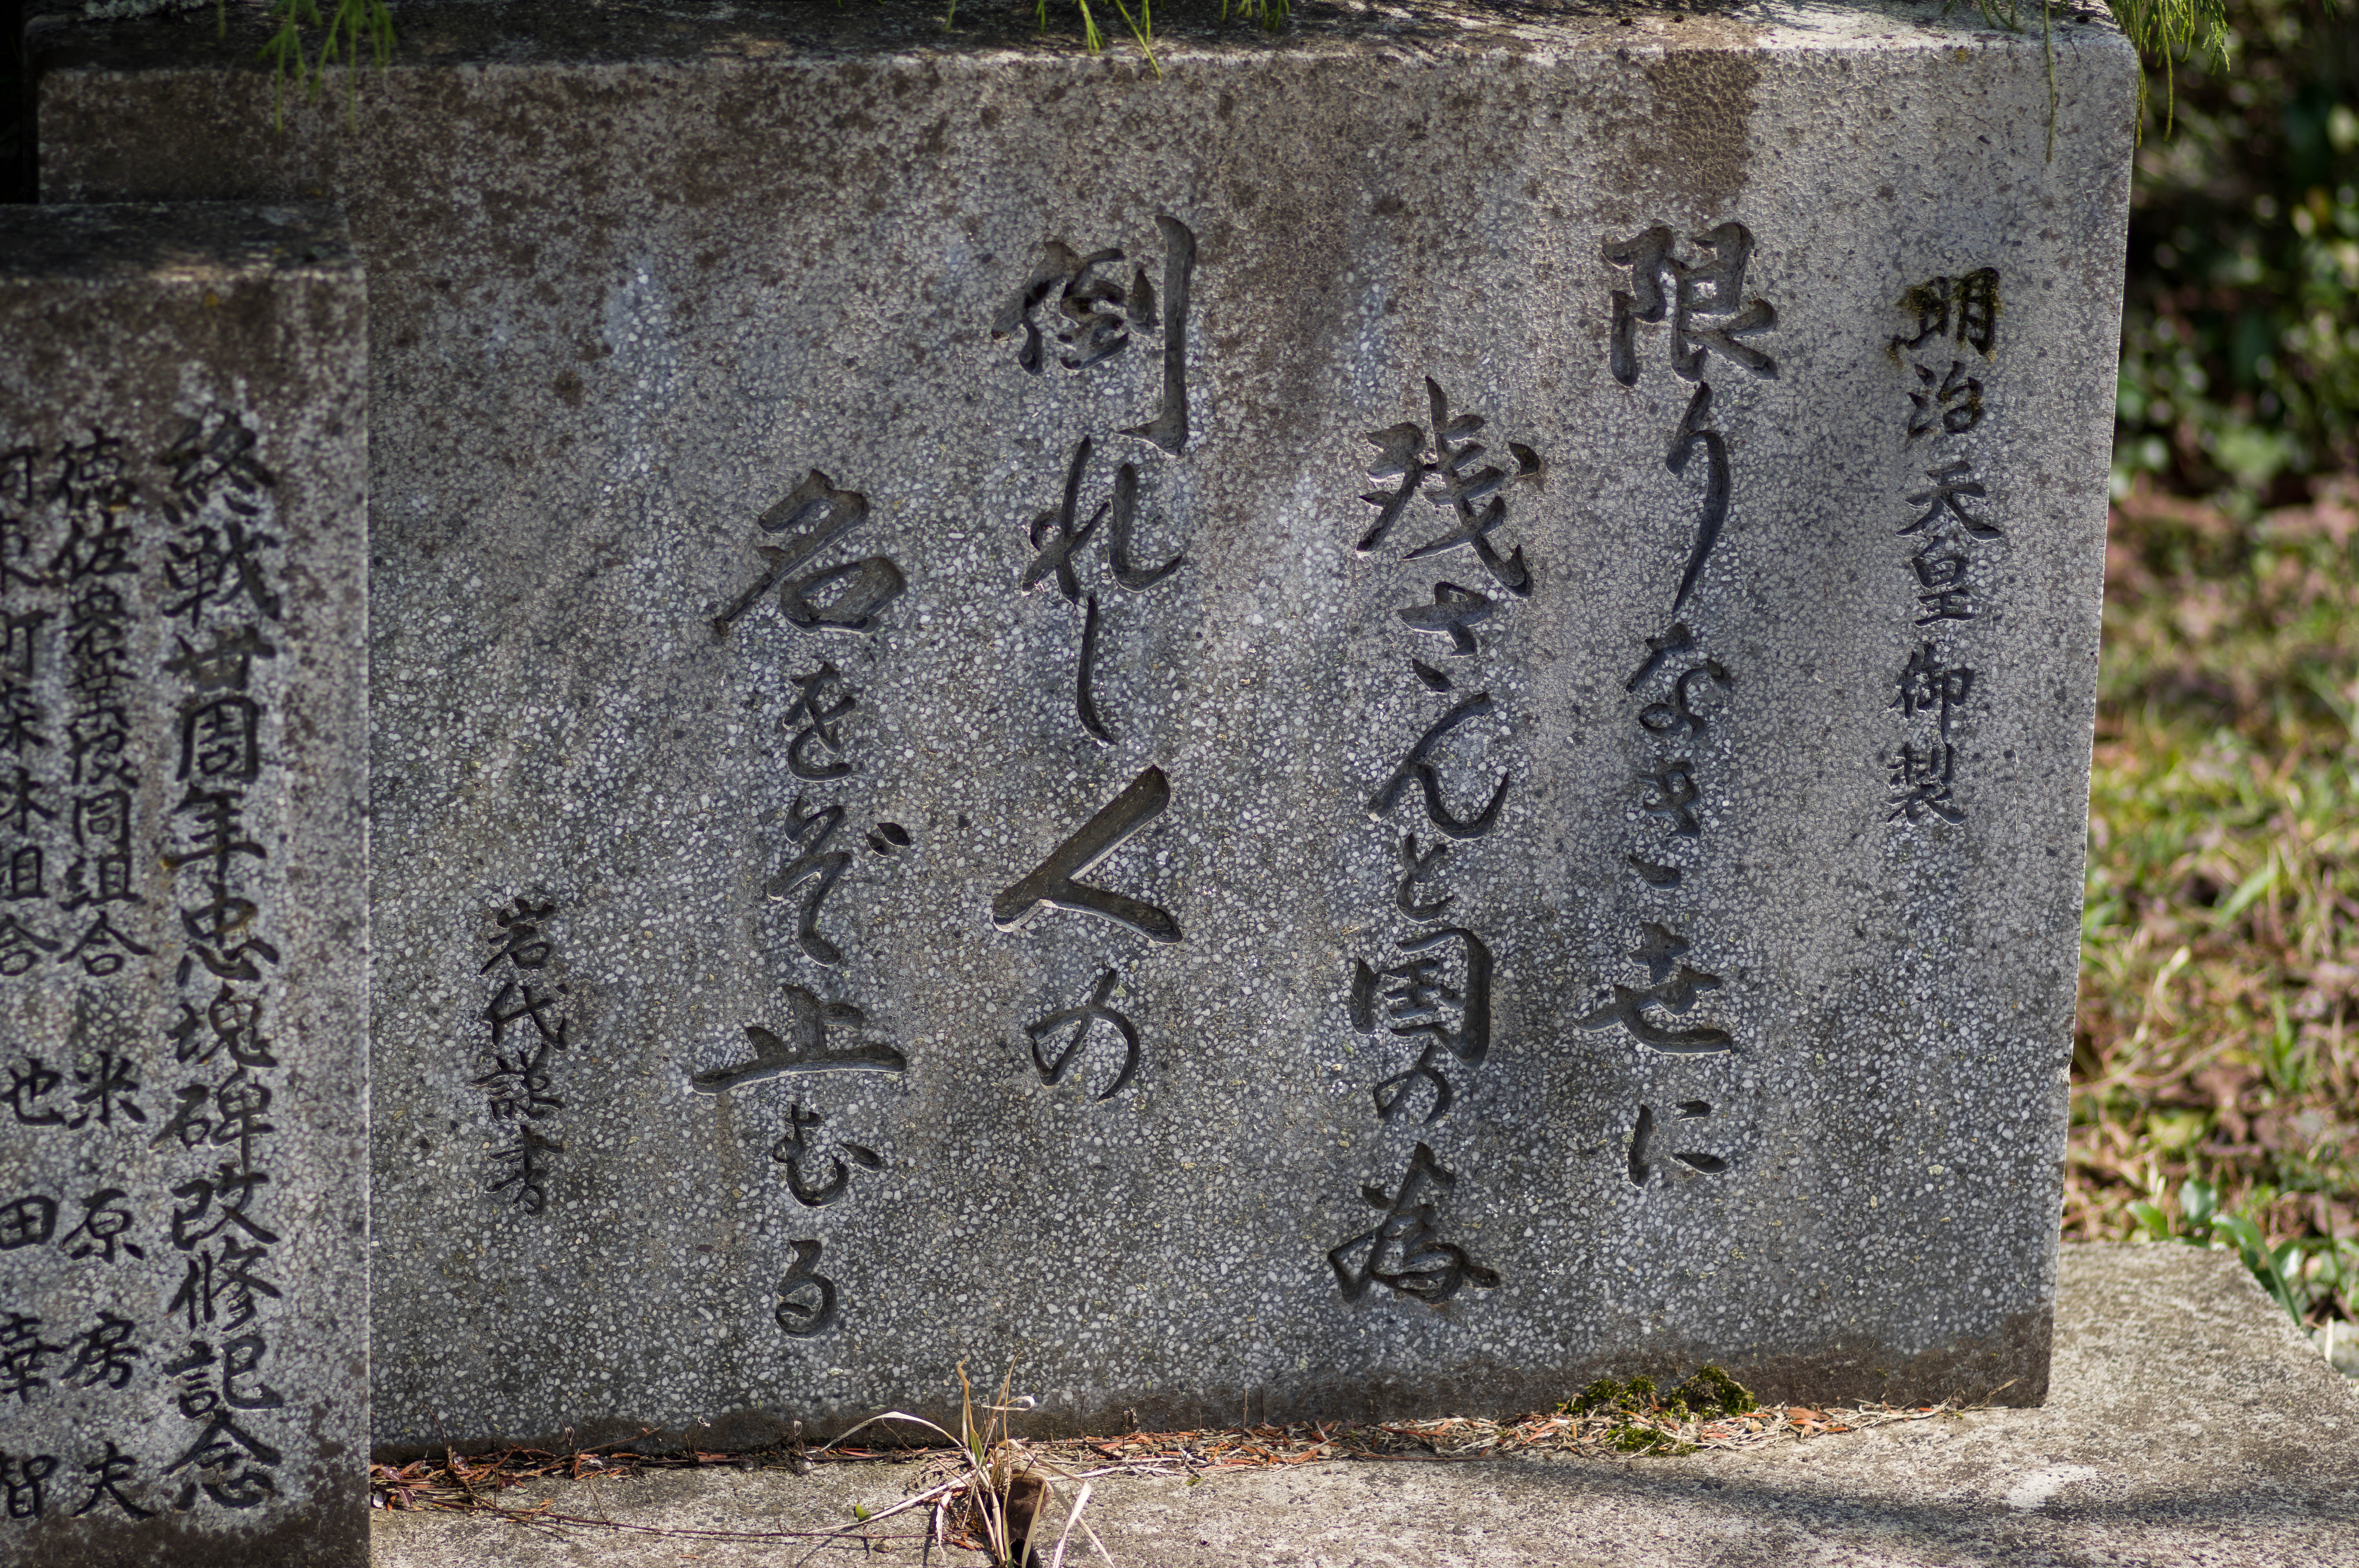 明治天皇御製
限りなき世に
残さんと国の為
倒れし人の
名をぞ止むる
岩代謹書
終戦廿周年忠魂碑改修記念
徳佐農業協同組合 米原房夫
阿東町森林組合 也田幸智